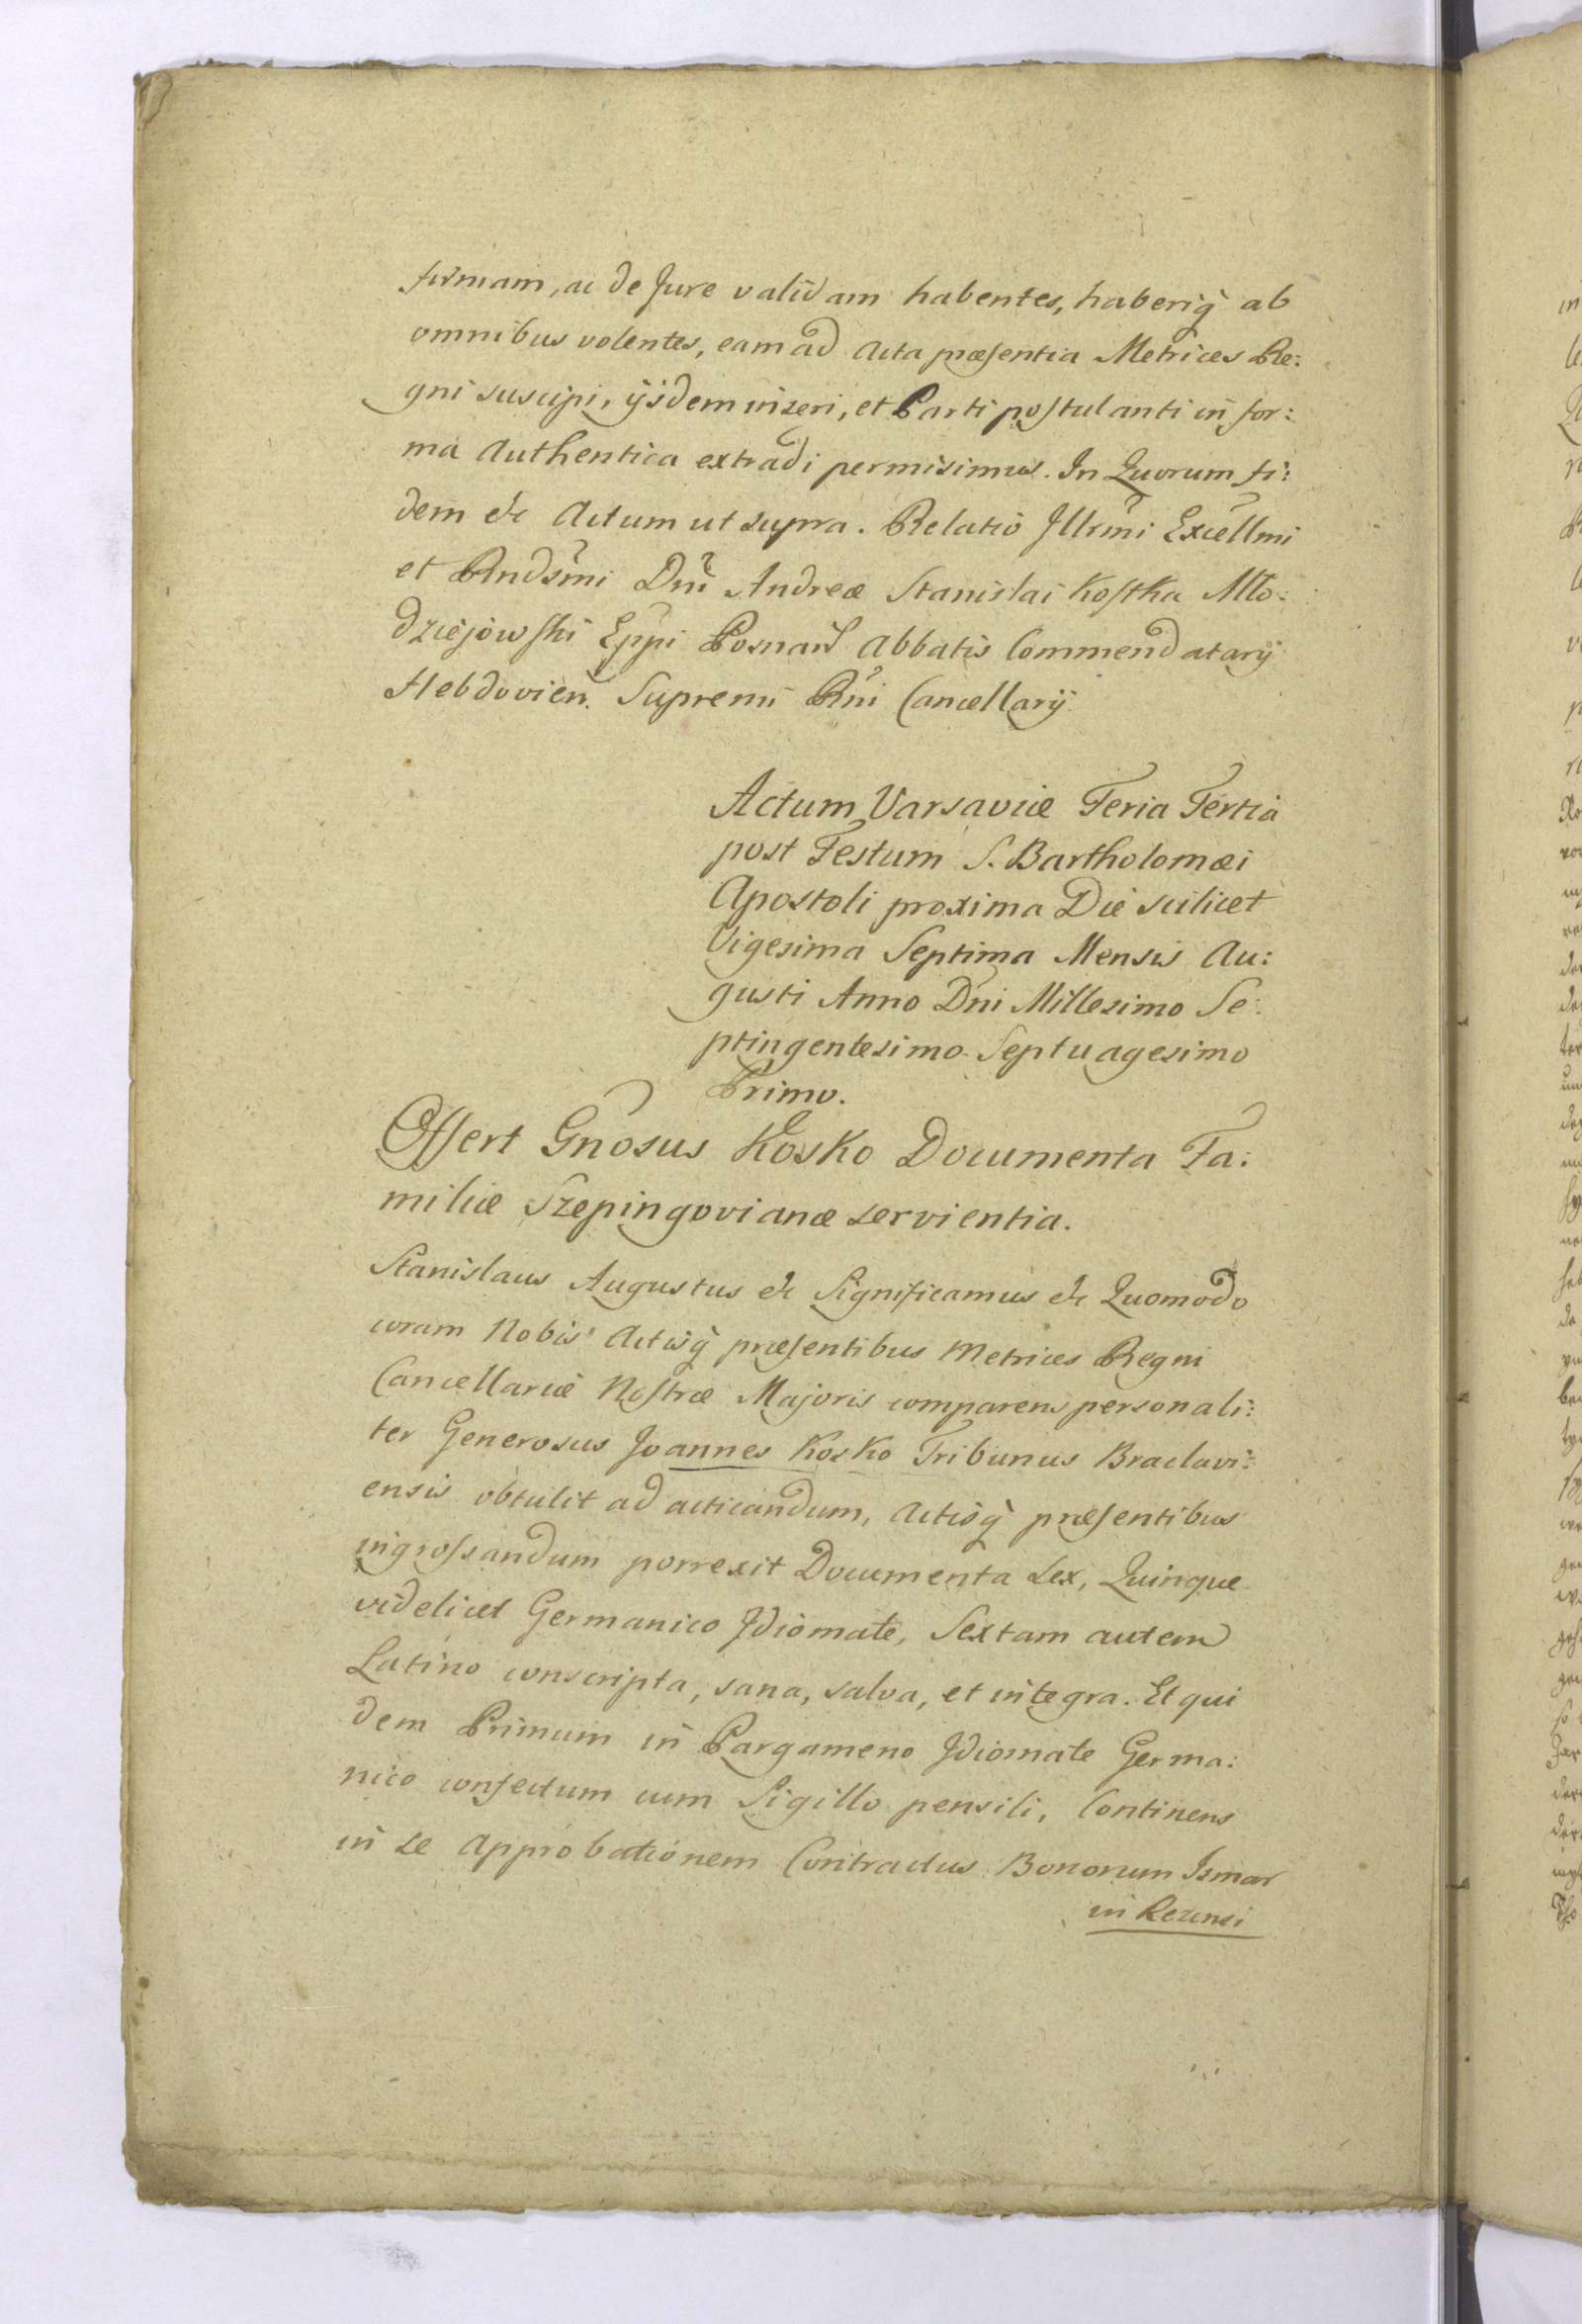 firmam, ac de Jure validam habentes, haberiq̃ ab
omnibus volentes, eam ad Acta præsentia Metrices Re:
gni suscipi, ijsdem inseri, et Parti postulanti in for:
ma Authentica extradi permisimus. In Quorum fi:
dem &c Actum ut supra. Relatio Jllrm̃i Excellm̃i
et Rnds̃mi Dnĩ Andreæ Stanislai Kostka Mło:
dziejowski Eppi Posnan̄ Abbatis Commendatarij
Hebdovien. Supremi Rn̄i Cancellarij
Actum Varsaviæ Feria Tertia
post Festum S. Bartholomæi
Apostoli proxima Die scilicet
Vigesima Septima Mensis Au:
gusti Anno Dn̄i Millesimo Se:
ptingentesimo Septuagesimo
Primo.
Offert Gn̄osus Kosko Documenta Fa:
miliæ Szepingovianæ servientia.
Stanislaus Augustus &c Significamus &c Quomodo
coram Nobis Actisq̃ præsentibus Metrices Regni
Cancellariæ Nostræ Majoris comparens personali:
ter Generosus Joannes Kosko Tribunus Braclavi:
ensis obtulit ad acticandum, Actisq̃ præsentibus
ingrossandum porrexit Documenta sex, Quinque
videlicet Germanico Jdiomate, Sextam autem
Latino conscripta, sana, salva, et integra. Et qui
dem Primum in Pargameno Jdiomate Germa:
nico confectum cum Sigillo pensili, Continens
in se Approbationem Contractus Bonorum Ismar
in